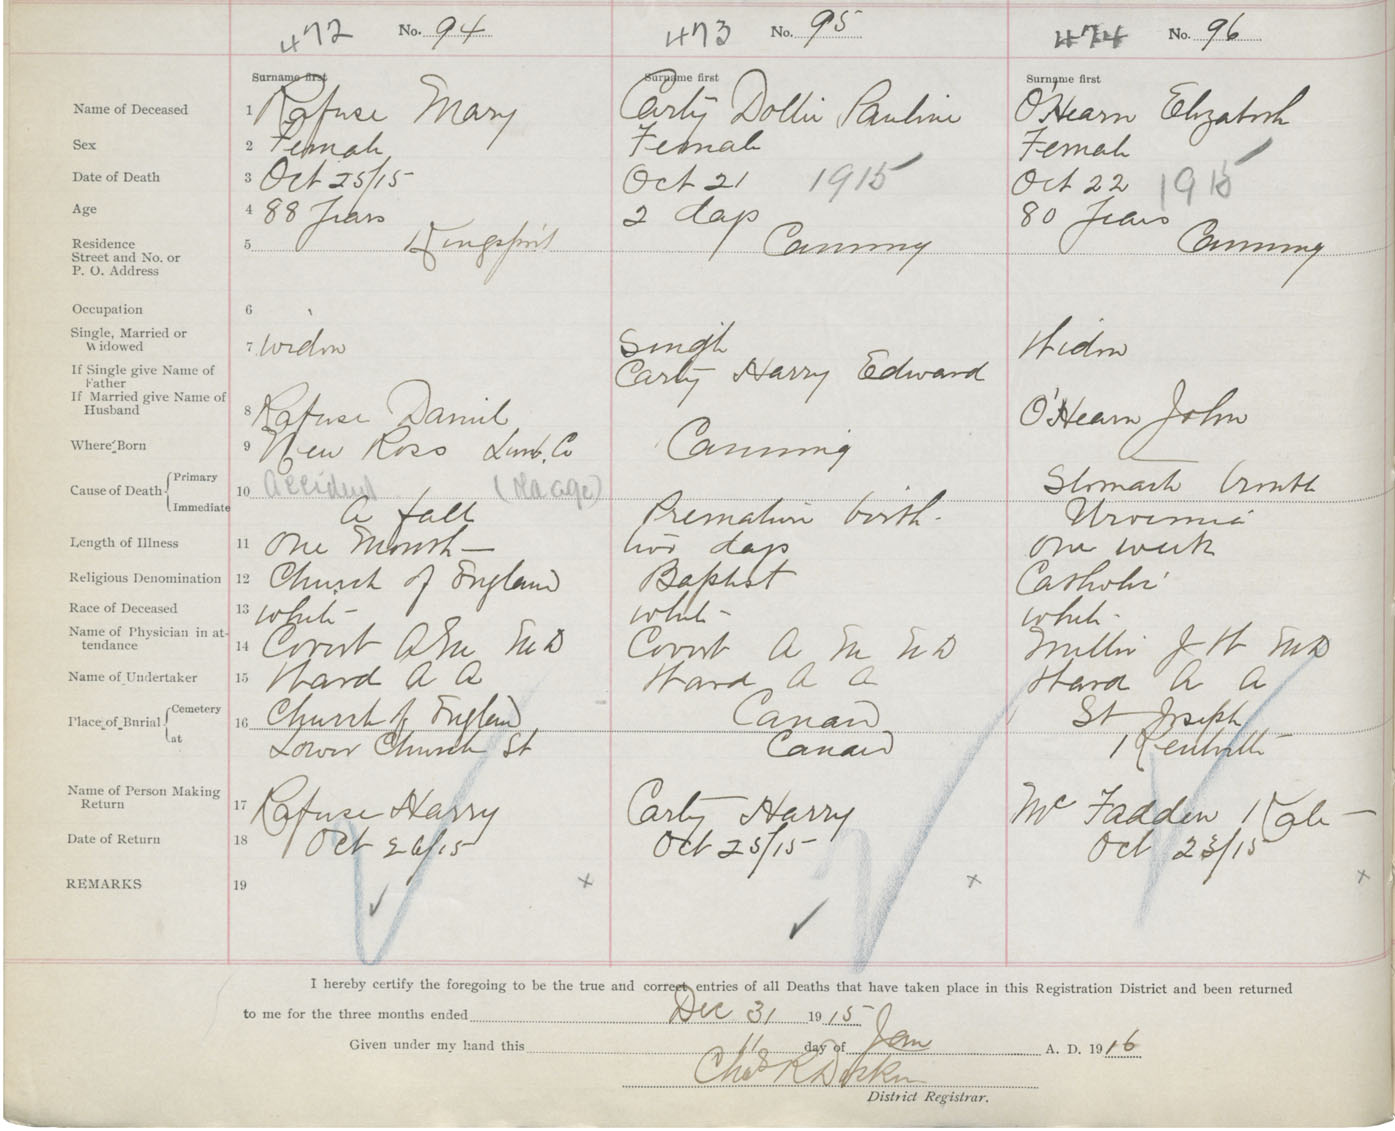 472 No. 94 473 No. 95 474 No. 96
Surname first Surname first Surname first
Name of Deceased 1 Refuse Mary Carty Dollie Pauline O'Hearn Elizabeth
Sex 2 Female Female Female
Date of Death 3 Oct 25/15 Oct 21 1915 Oct 22 1915
Age 4 88 Years 2 days 80 Years
Residence 5 Kingsport Canning Canning
Street and No. or
P. O. Address
Occupation 6
Single, Married or
Widowed 7 widow Single Widow
If Single give Name of Carty Harry Edward
Father
If Married give Name of
Husband 8 Refuse Daniel O'Hearn John
Where Born 9 New Ross Lun. Co Canning
Cause of Death Primary 10 Accident Stomach trouble
Immediate A fall Premature birth. Uraemia
Length of Illness 11 One Month— two days one week
Religious Denomination 12 Church of England Baptist Catholic
Race of Deceased 13 white white white
Name of Physician in at-
tendance 14 Covert A M M D Covert A M M D Miller J W M D
Name of Undertaker 15 Ward A A Ward A A Ward A A
Place of Burial Cemetery 16 Church of England Canard St Joseph
at Lower Church St Canard Kentville
Name of Person Making
Return 17 Refuse Harry Carty Harry McFadden Kate
Date of Return 18 Oct 26/15 Oct 25/15 Oct 23/15
REMARKS 19 x x x
I hereby certify the foregoing to be the true and correct entries of all Deaths that have taken place in this Registration District and been returned
to me for the three months ended Dec 31 1915
Given under my hand this 11 day of Jan A. D. 1916
Chas R
District Registrar.